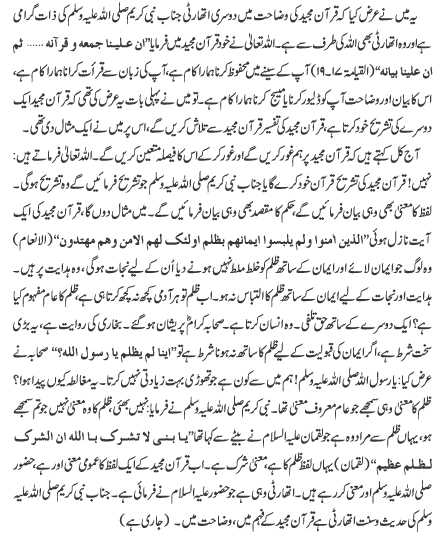 یہ میں نے عرض کیا کہ قرآن مجید کی وضاحت میں دوسری اتھارٹی جناب نبی کریم صلی اللہ علیہ وسلم کی ذات گرامی
ہے اور وہ اتھارٹی بھی اللہ کی طرف سے ہے۔ اللہ تعالیٰ نے خود قرآن مجید میں فرمایا ”ان علینا جمعہ و قرآنہ ...... ثم
ان علینا بیانہ“ (القیامۃ ۱۷۔۱۹) آپ کے سینے میں محفوظ کرنا ہمارا کام ہے، آپ کی زبان سے قرأت کرانا ہمارا کام ہے،
اس کا بیان اور وضاحت آپ کو ڈلیور کرنا یا میسج کرنا ہمارا کام ہے۔ تو میں نے پہلی بات یہ عرض کی تھی کہ قرآن مجید ایک
دوسرے کی تشریح خود کرتا ہے، قرآن مجید کی تفسیر قرآن مجید سے تلاش کریں گے، اس پر میں نے ایک مثال دی تھی۔
آج کل کہتے ہیں کہ قرآن مجید پر ہم غور کریں گے اور غور کر کے اس کا فیصلہ متعین کریں گے۔ اللہ تعالیٰ فرماتے ہیں:
نہیں! قرآن مجید کی تشریح قرآن خود کرے گا یا جناب نبی کریم صلی اللہ علیہ وسلم جو تشریح فرمائیں گے وہ تشریح ہوگی۔
لفظ کا معنیٰ بھی وہی بیان فرمائیں گے، حکم کا مقصد بھی وہی بیان فرمائیں گے۔ میں مثال دوں گا، قرآن مجید کی ایک
آیت نازل ہوئی ”الذین اٰمنوا ولم یلبسوا ایمانھم بظلم اولئک لھم الامن وھم مھتدون“ (الانعام)
وہ لوگ جو ایمان لائے اور ایمان کے ساتھ ظلم کو خلط ملط نہیں ہونے دیا اُن کے لیے نجات ہوگی۔ وہ ہدایت پر ہیں۔
ہدایت اور نجات کے لیے ایمان کے ساتھ ظلم کا التباس نہ ہو۔ اب ظلم تو ہر آدمی کچھ نہ کچھ کرتا ہی ہے، ظلم کا عام مفہوم کیا
ہے؟ ایک دوسرے کے ساتھ حق تلفی۔ وہ انسان کرتا ہے۔ صحابہ کرامؓ پریشان ہو گئے۔ بخاری کی روایت ہے، یہ بڑی
سخت شرط ہے، اگر ایمان کی قبولیت کے لیے ظلم کا ساتھ نہ ہونا شرط ہے تو ”اینا لم یظلم یا رسول اللہ؟“ صحابہ نے
عرض کیا: یا رسول اللہ صلی اللہ علیہ وسلم! ہم میں سے کون ہے جو تھوڑی بہت زیادتی نہیں کرتا۔ یہ مغالطہ کیوں پیدا ہوا؟
ظلم کا معنیٰ وہی سمجھے جو عام معروف معنیٰ تھا۔ نبی کریم صلی اللہ علیہ وسلم نے فرمایا: نہیں بھئی، ظلم کا وہ معنیٰ نہیں جو تم سمجھے
ہو، یہاں ظلم سے مراد وہ ہے جو لقمان علیہ السلام نے بیٹے سے کہا تھا ”یا بنی لا تشرک با اللہ ان الشرک
لظلم عظیم“ (لقمان) یہاں لفظ ظلم کا ہے، معنیٰ شرک ہے۔ اب قرآن مجید کے ایک لفظ کا عمومی معنیٰ اور ہے، حضور
صلی اللہ علیہ وسلم اور معنیٰ کر رہے ہیں۔ اتھارٹی وہی ہے جو حضور علیہ السلام نے فرمائی ہے۔ جناب نبی کریم صلی اللہ علیہ
وسلم کی حدیث و سنت اتھارٹی ہے قرآن مجید کے فہم میں، وضاحت میں۔ (جاری ہے)